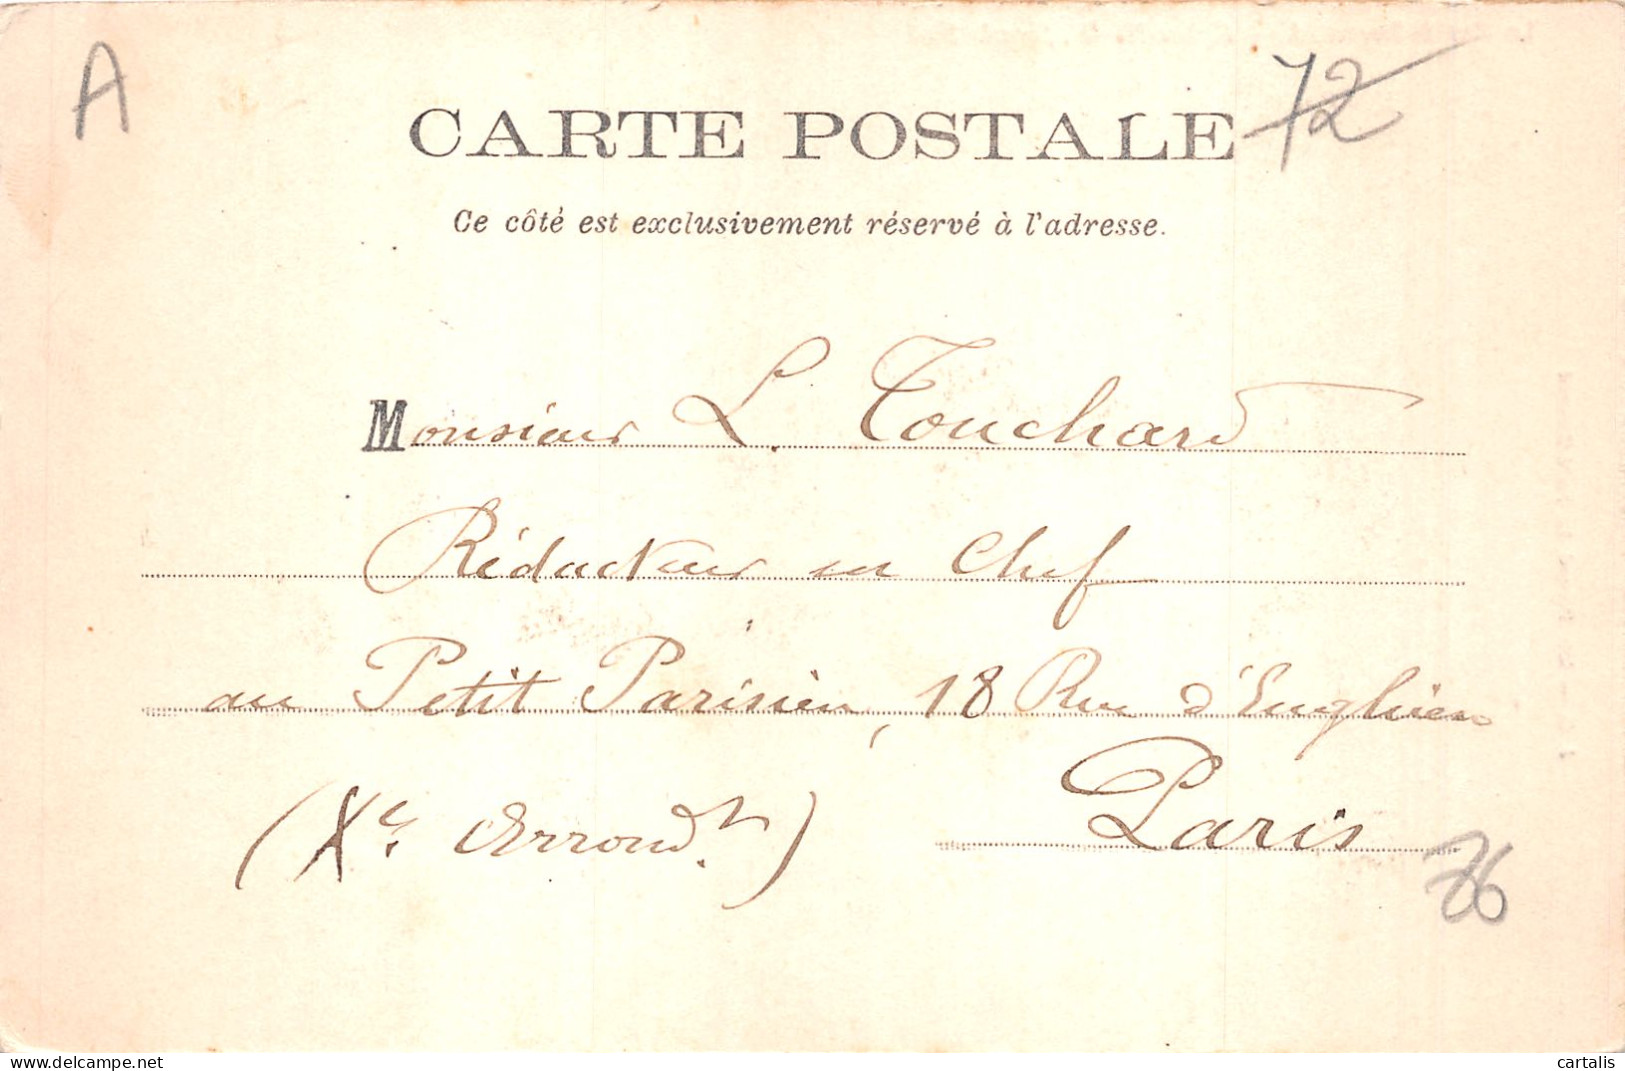 A
72
CARTE POSTALE
Ce côté est exclusivement réservé à l'adresse.
Monsieur L. Touchard
Rédacteur en Chef
au Petit Parisien, 18 Rue d'Enghien
(Xe Arrondt.) Paris
76
www.delcampe.net
cartalis